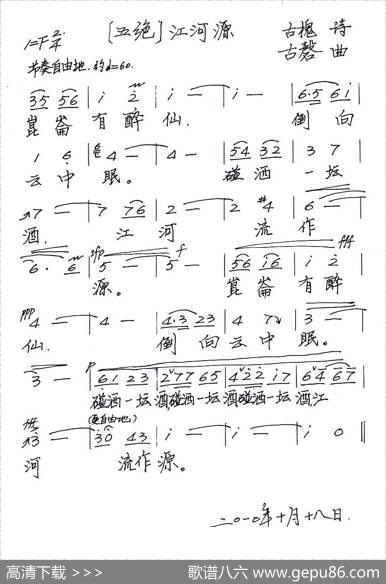 [五绝] 江河源
1=F 2/4
古槐 诗
节奏自由地. 约♩=60.
古磬 曲
35 56 | i 2 | i — | i — | 6·5 6i |
崑崙 有醉 仙. 倒向
1 6 | 4 — | 4 — | 54 32 | 3 7 |
云中 眠。 碰酒 一坛
7 — | 7 76 | 2 — | 2 #4 | 6 — |
酒. 江 河 流 作
6· 6 | 5 — | 5 — | 56 16 | i 2 |
sfp f fff
源。 崑崙 有醉
ppp
4 — | 4 — | 4·3 23 | 4 7 | 3 — |
仙. 倒 向 云 中 眠。
p
3 — | 61 23 | 2 77 65 | 4 22 i7 | 6 4 67 |
碰酒一坛酒碰酒一坛酒碰酒一坛酒江
(更自由地)
3 — | 30 43 | i — | i — | i 0 ‖
河 流作源。
二〇一〇年十月十八日.
高清下载 >>>
歌谱八六 www.gepu86.com